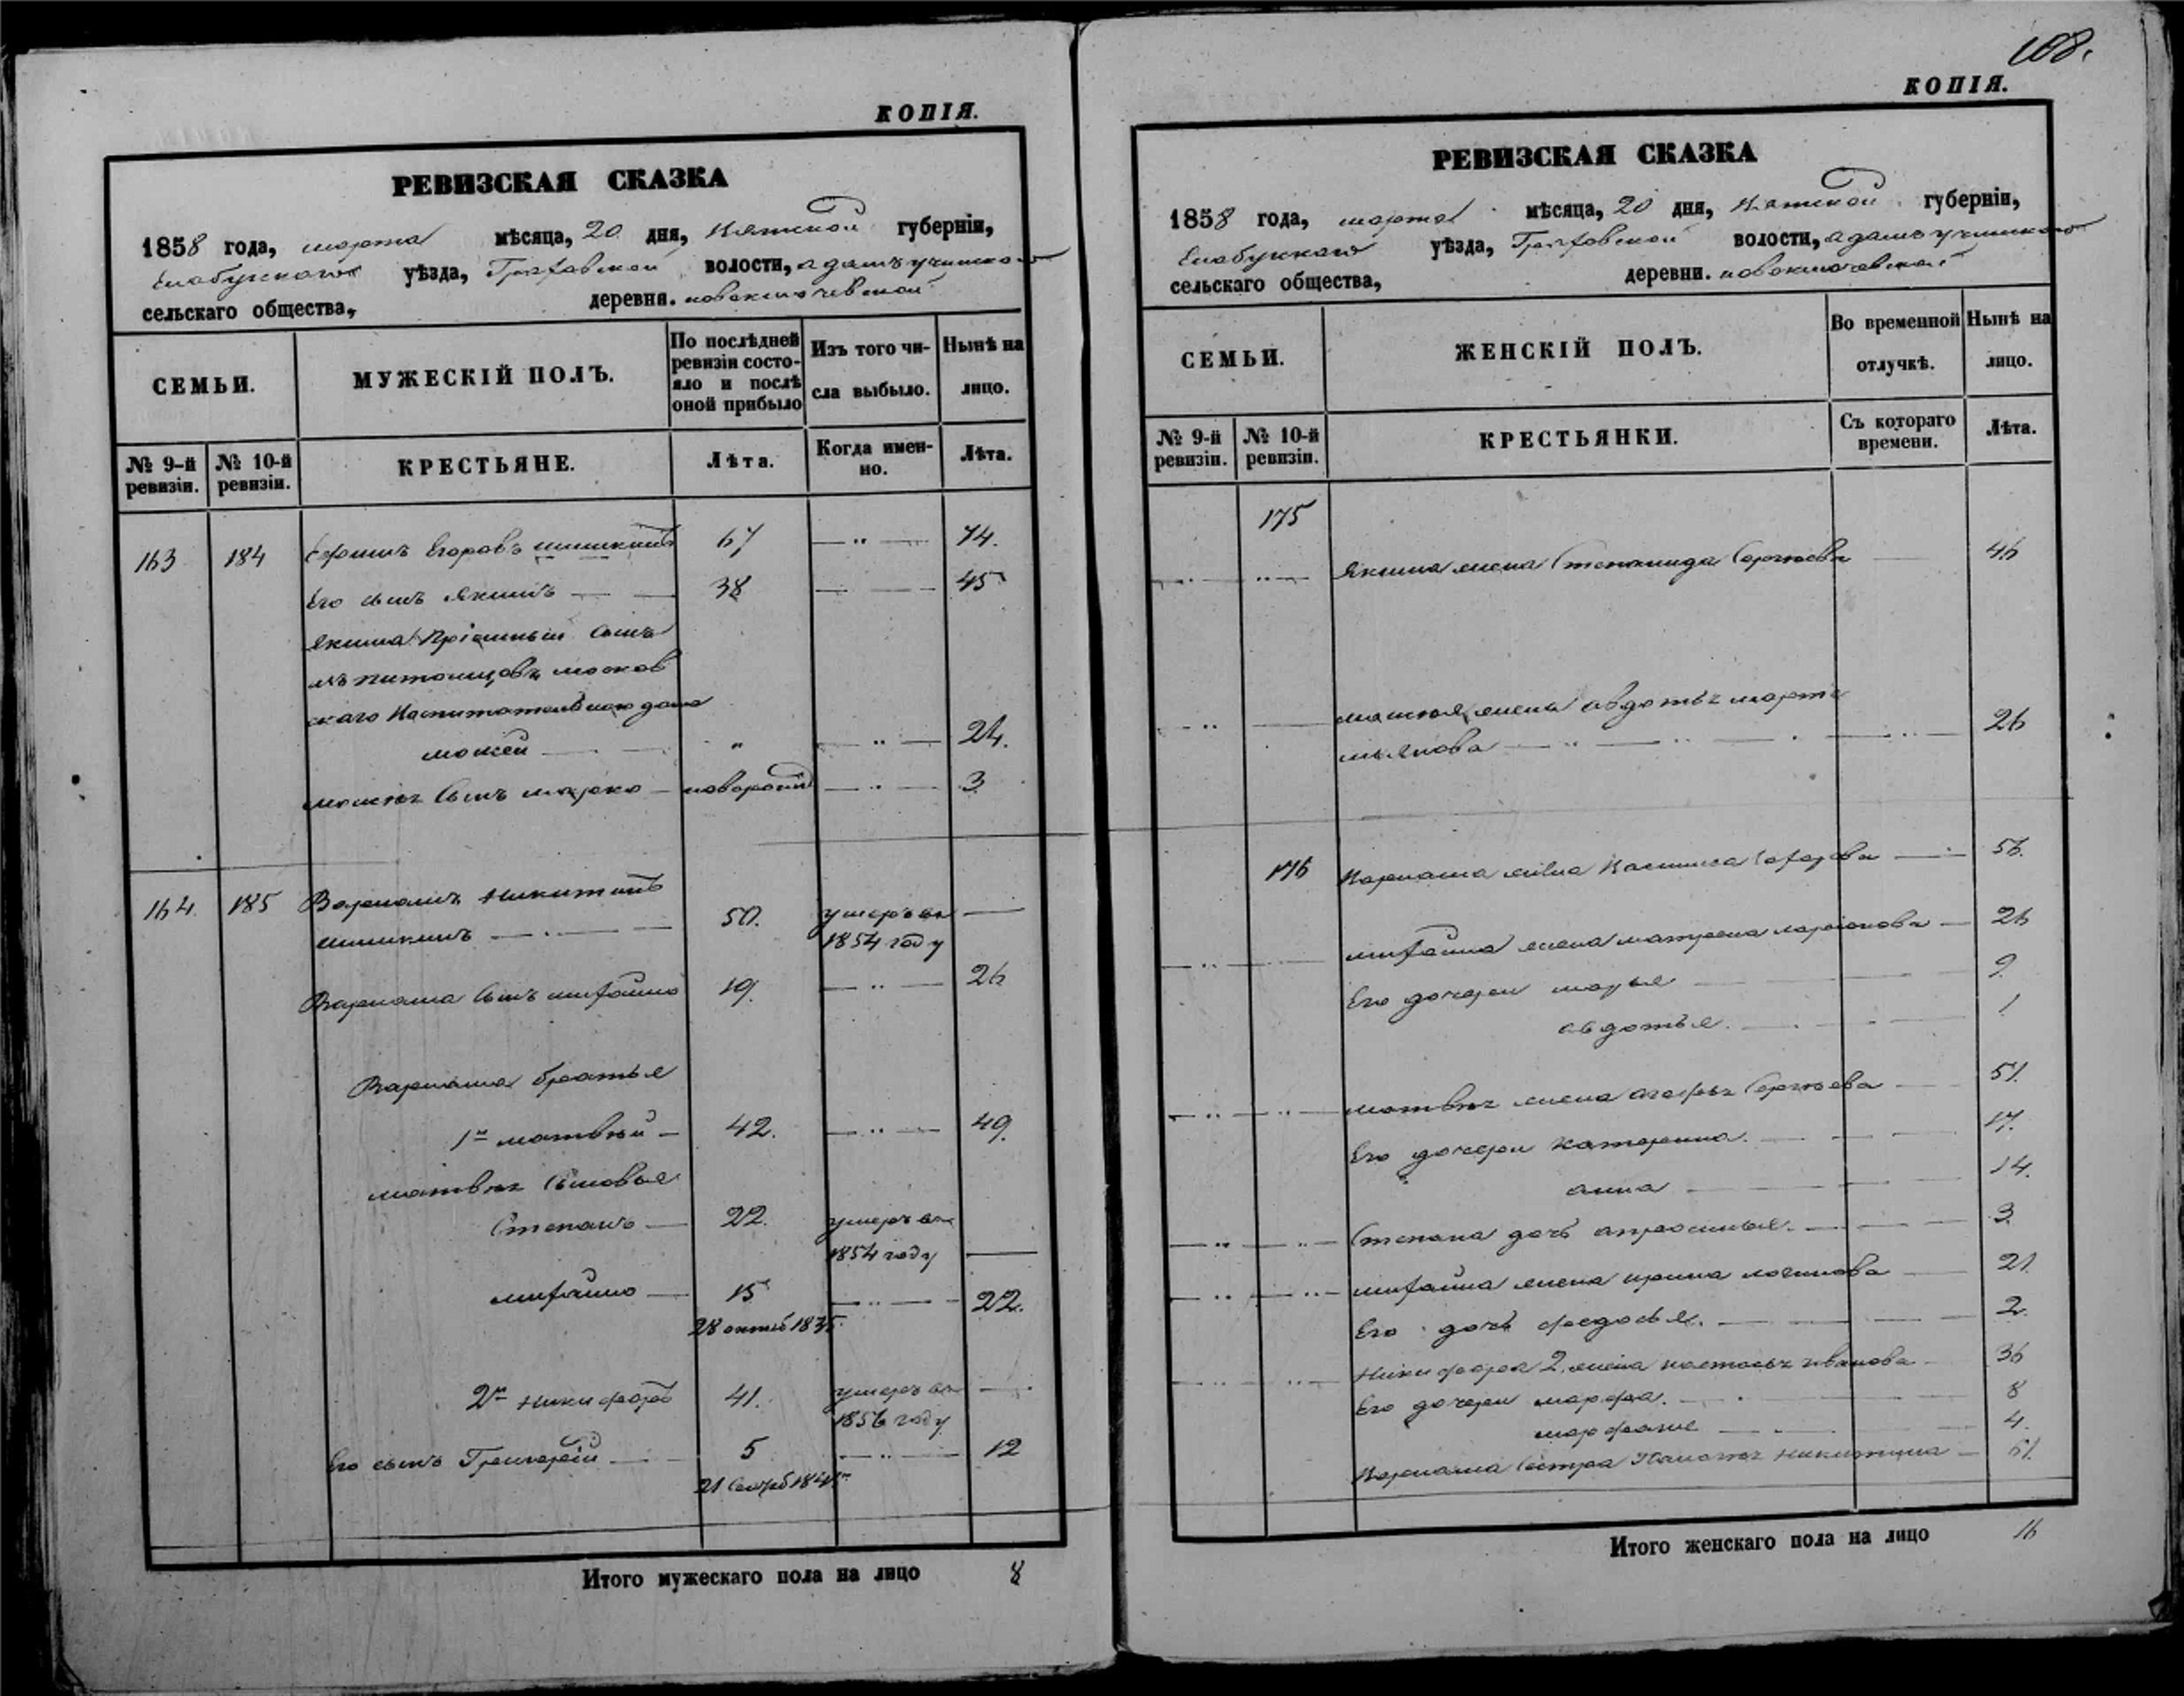 КОПІЯ.
РЕВИЗСКАЯ СКАЗКА
1858 года, марта мѣсяца, 20 дня, Вятской губерніи,
Елабужскаго уѣзда, Граховской волости,
сельскаго общества, деревни. новоключевской
СЕМЬИ.
МУЖЕСКІЙ ПОЛЪ.
По послѣдней ревизіи состо-
яло и послѣ оной прибыло
Изъ того чи-
сла выбыло.
Нынѣ на лицо.
№ 9-й ревизіи.
№ 10-й ревизіи.
КРЕСТЬЯНЕ.
Лѣта.
Когда имен-
но.
Лѣта.
163 184 Ефимъ Егоровъ шишкинъ 67 — " — 74.
Его сынъ Якимъ — — 38 — — 45
Якима Пріемный сынъ
изъ питомцовъ москов
скаго Воспитательнаго дома
мосей — — " — " — 24.
сынъ марко — новорожд — " — 3
164. 185 Варламъ Никитинъ
шишкинъ — · — 50. умеръ въ —
1854 году
Варлама сынъ михайло 19. — " — 26
Варлама братья
1й матвѣй — 42. — " — 49.
матвѣя сыновья
Степанъ — 22. умеръ въ
1854 году —
михайло — 15 — " — 22.
28 октяб 1835
2й Никифоръ 41. умеръ въ — ·
1856 году
Его сынъ Григорій — 5 — " — 12
Итого мужескаго пола на лицо 8
108.
КОПІЯ.
РЕВИЗСКАЯ СКАЗКА
1858 года, марта мѣсяца, 20 дня, Вятской губерніи,
Елабужскаго уѣзда, Граховской волости,
сельскаго общества, деревни. новоключевской
СЕМЬИ.
ЖЕНСКІЙ ПОЛЪ.
Во временной отлучкѣ.
Нынѣ на лицо.
№ 9-й ревизіи.
№ 10-й ревизіи.
КРЕСТЬЯНКИ.
Съ котораго времени.
Лѣта.
175
Якима жена Степанида Сергѣева — 46
жена авдотья марте
мьянова — " — " — 26
176 Варлама жена Васи́лиса — 56.
михайла жена матрена ларіонова — 26
Его дочери марья — 9.
авдотья. — 1
матвѣя жена Сергѣева — 51.
Его дочери катерина. — 17.
анна — 14.
Степана дочь апросинья. — 3
михайла жена ирина логинова — 21.
Его дочь федосья. — 2.
Никифора 2. жена настасья иванова — 36
Его дочери марфа. — 8
4.
Варлама сестра Никитина — 51.
Итого женскаго пола на лицо 16